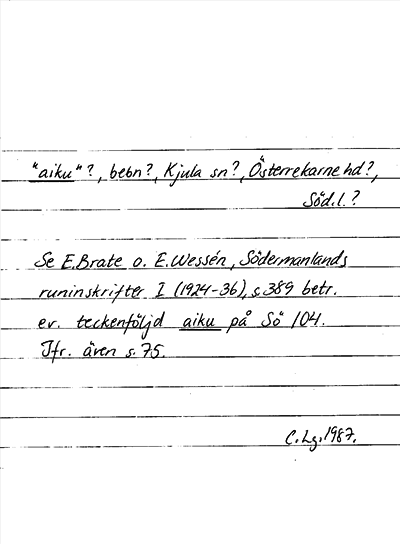 "aiku"?, bebn?, Kjula sn?, Österrekarne hd?,
Söd.l.?
Se E.Brate o. E.Wessén, Södermanlands
runinskrifter I (1924-36), s.389 betr.
ev. teckenföljd aiku på Sö 104.
Jfr. även s.75.
C.Lg.1987.